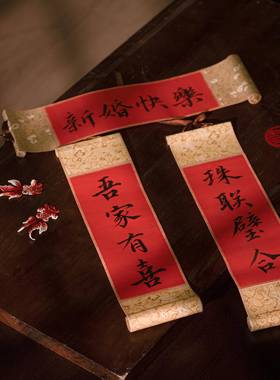 新婚快樂
吾家有喜
珠联璧合